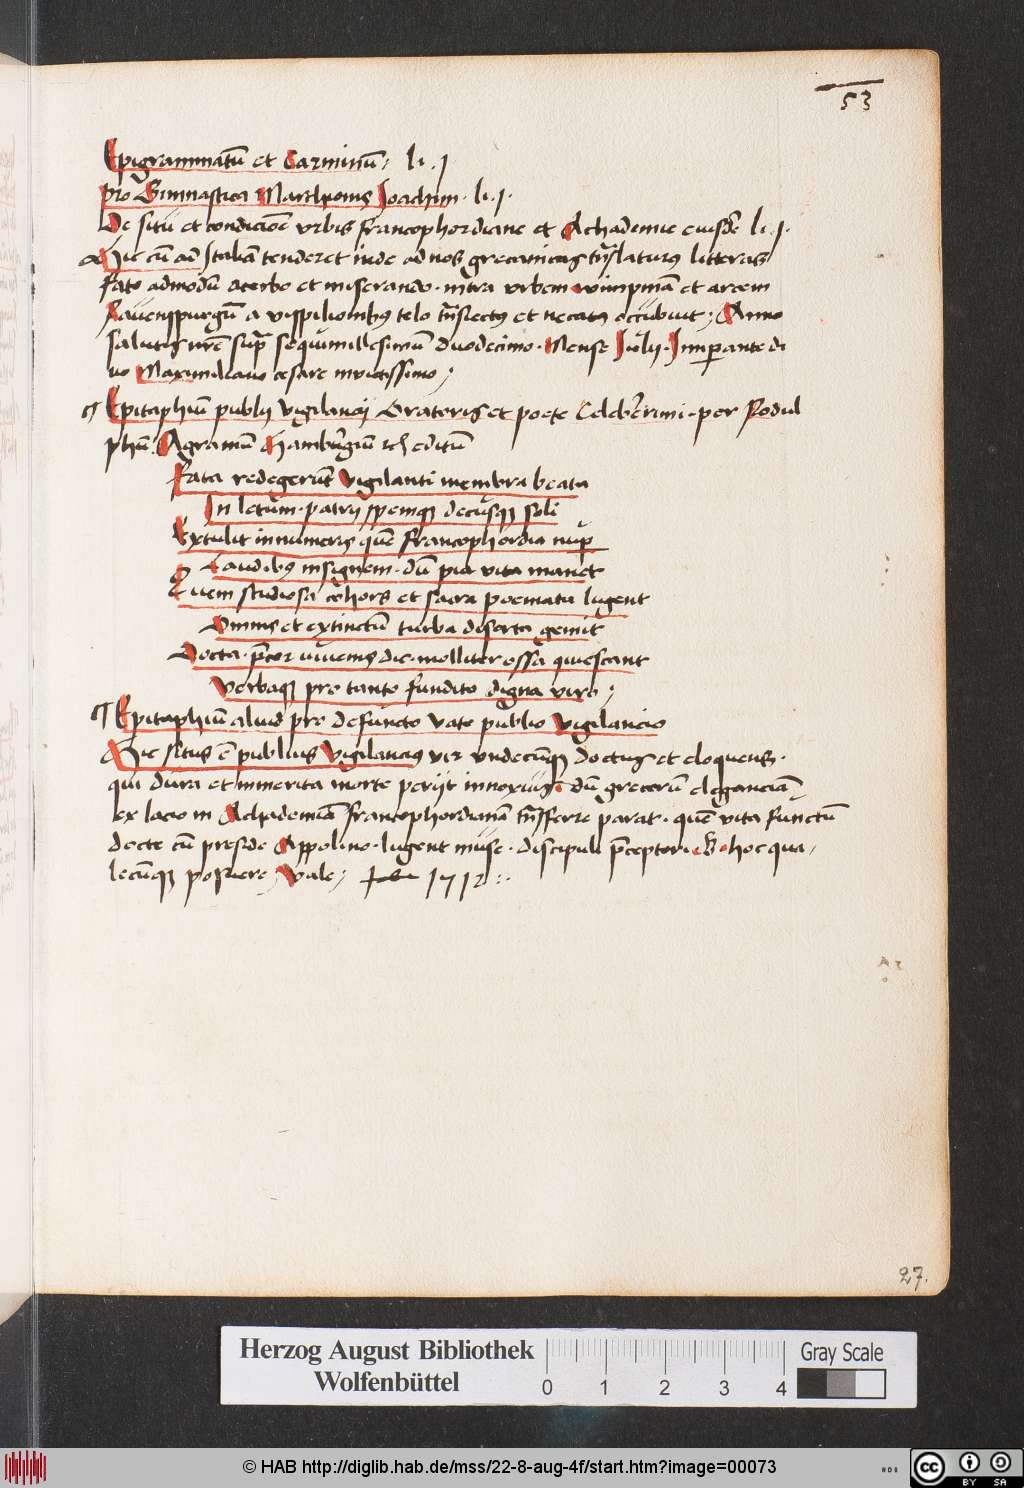 53
Epigrammatū et Carminū; li. j
pro Gimnastica Marchionis Joachim. li. j.
De situ et condicioē vrbis francophordiane et Achademie eiusdē li. j.
Hic cū ad Italiā tenderet inde ad nos grecanicas trāslaturus litteras
fato admodū acerbo et miserando. intra vrbem wimpinā et arcem
Ravenspurgū a vispilionibus telo trāsiectus et necatus occubuit; Anno
salutis nr̄e supra sequimillesimū duodecimo. Mense Julii. Imperante di
uo Maximiliano cesare invictissimo;
¶ Epitaphiū publii vigilancij Oratoris et poete Celeberrimi. per Rodul
phū. Agramū editū
Fata redegerūt vigilanti membra beata
In letum. patrij spemq decusq soli
Extulit innumeris quē francophordia nup
Laudibus insignem. dū pia vita manet
Quem studiosa cohors et sacra poemata lugent
Omnis et extinctū turba diserta gemit
Docta. p̄cor viuens dic. molliter ossa quiescant
Verbaq pro tanto fundito digna viro;
¶ Epitaphiū aliud pro defuncto vate publio vigilancio
Hic situs ē publius Vigilancius vir vndecūq doctus et eloquens.
qui dura et immerita morte perijt innoxius. dū grecorū eleganciā
ex lacio in Achademiā francophordianā trāsferre parat. quē vita functū
docte cū preside Appoline. lugent muse. discipuli p̄ceptori. B. hoc qua/
lecūq posuere; Vale; 1512
27.
Herzog August Bibliothek
Wolfenbüttel
0 1 2 3 4
Gray Scale
© HAB http://diglib.hab.de/mss/22-8-aug-4f/start.htm?image=00073
HAB
cc BY SA